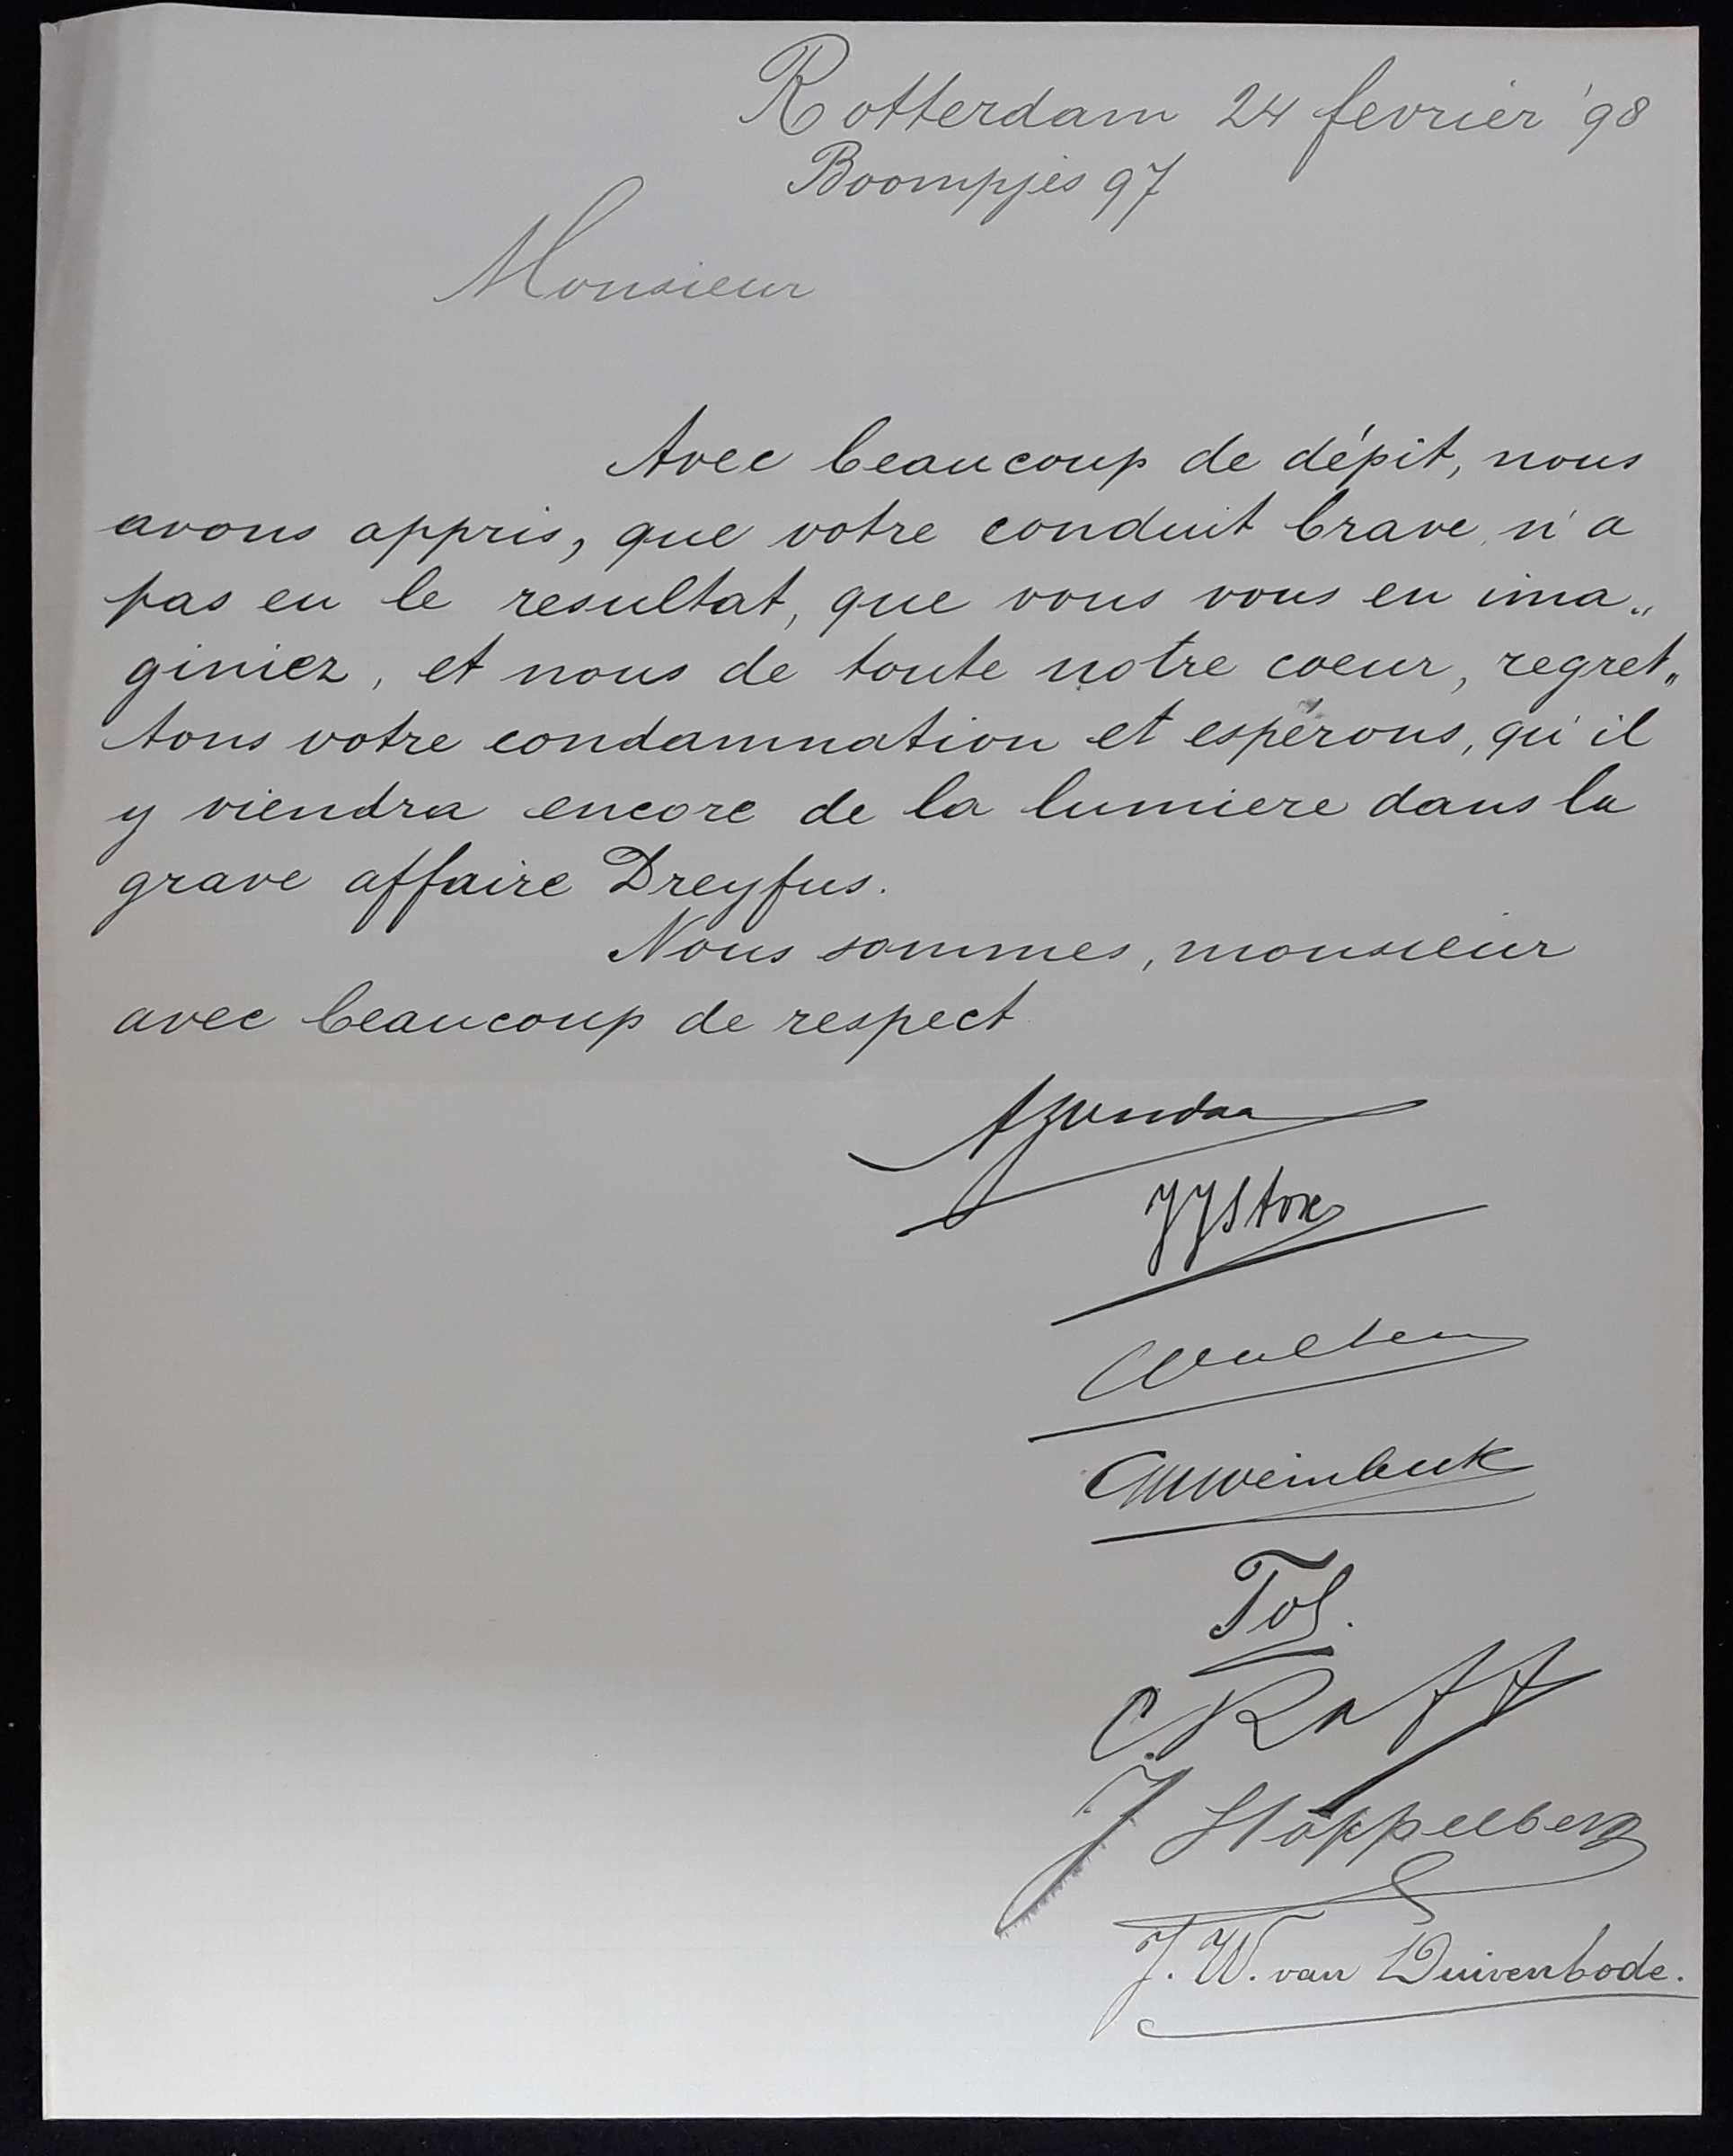 Rotterdam 24 fevrier '98
Boompjes 97
Monsieur
Avec beaucoup de dépit, nous
avons appris, que votre conduit brave n'a
pas eu le resultat, que vous vous en ima„
giniez, et nous de toute notre coeur, regret„
tons votre condamnation et espérons, qu'il
y viendra encore de la lumiere dans la
grave affaire Dreyfus.
Nous sommes, monsieur
avec beaucoup de respect
JJ Stok
Tol.
C. Raff
J. W. van Duivenbode.